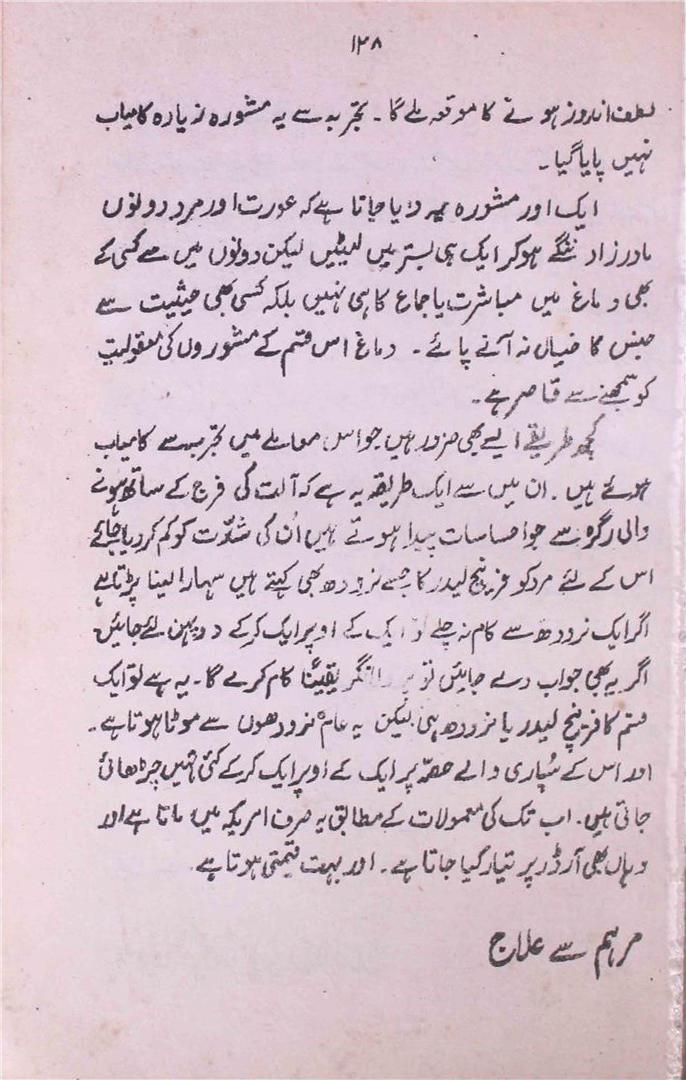 ۱۲۸
لطف اندوز ہونے کا موقعہ ملے گا۔ تجربہ سے یہ مشورہ زیادہ کامیاب
نہیں پایا گیا۔
ایک اور مشورہ یہ دیا جاتا ہے کہ عورت اور مرد دونوں
مادر زاد ننگے ہو کر ایک ہی بستر میں لیٹیں لیکن دونوں میں سے کسی کے
بھی دماغ میں مباشرت یا جماع کا ہی نہیں بلکہ کسی بھی حیثیت سے
جنس کا خیال نہ آنے پائے۔ دماغ اس قسم کے مشوروں کی معقولیت
کو سمجھنے سے قاصر ہے۔
کچھ طریقے ایسے بھی ضرور ہیں جو اس معاملے میں تجربہ سے کامیاب
ہوئے ہیں۔ ان میں سے ایک طریقہ یہ ہے کہ آلت کی فرج کے ساتھ ہونے
والی رگڑ سے جو احساسات پیدا ہوتے ہیں اُن کی شدّت کو کم کر دیا جائے
اس کے لئے مرد کو فرینچ لیدر کا جسے نرودھ بھی کہتے ہیں سہارا لینا پڑتا ہے
اگر ایک نرودھ سے کام نہ چلے تو ایک کے اوپر ایک کر کے دو پہن لئے جائیں
اگر یہ بھی جواب دے جائیں تو یقیناً کام کرے گا۔ یہ ہے تو ایک
قسم کا فرینچ لیدر یا نرودھ ہی لیکن یہ عام نرودھوں سے موٹا ہوتا ہے۔
اور اس کے سُپاری والے حصّہ پر ایک کے اوپر ایک کر کے کئی تہیں چڑھائی
جاتی ہیں۔ اب تک کی معمولات کے مطابق یہ صرف امریکہ میں ملتا ہے اور
وہاں بھی آرڈر پر تیار کیا جاتا ہے۔ اور بہت قیمتی ہوتا ہے۔
مرہم سے علاج